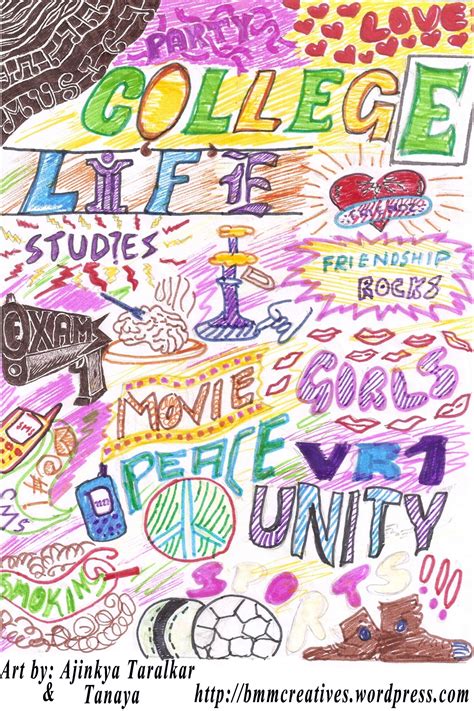 MUSIC
PARTY
LOVE
COLLEGE
LIFE
STUDIES
FRIENDSHIP
ROCKS
EXAM
MOVIE
GIRLS
SMS
PEACE
VB1
UNITY
SMOKING
SPORTS!!!
Art by: Ajinkya Taralkar
& Tanaya
http://bmmcreatives.wordpress.com